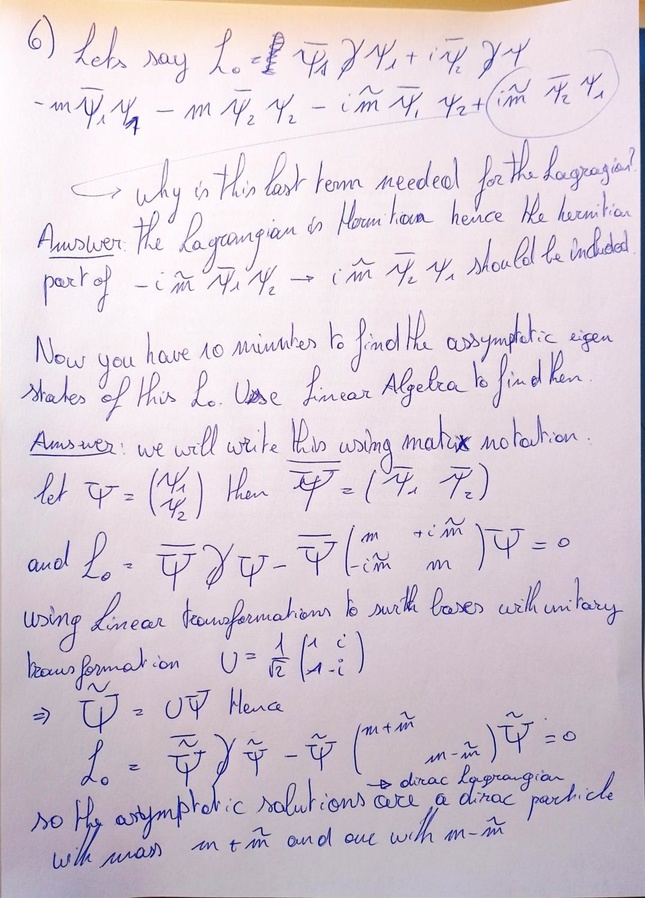 6) Lets say L₀ = Ψ̄₁ γ Ψ₁ + i Ψ̄₂ γ Ψ
- m Ψ̄₁ Ψ₁ - m Ψ̄₂ Ψ₂ - i m̃ Ψ̄₁ Ψ₂ + i m̃ Ψ̄₂ Ψ₁
↪ why is this last term needed for the Lagragian?
Answer: the Lagrangian is Hermitian hence the hermitian
part of - i m̃ Ψ̄₁ Ψ₂ → i m̃ Ψ̄₂ Ψ₁ should be included.
Now you have 10 minutes to find the assymptotic eigen
states of this L₀. Use Linear Algebra to find then.
Answer: we will write this using matrix notation.
let Ψ = (Ψ₁ Ψ₂) then Ψ̄ = (Ψ̄₁ Ψ̄₂)
and L₀ = Ψ̄ γ Ψ - Ψ̄ (m +i m̃ -i m̃ m) Ψ = 0
using Linear transformations to bases with unitary
transformation U = 1/√2 (1 i 1 -i)
⇒ Ψ̃ = UΨ Hence
L₀ = Ψ̄̃ γ Ψ̃ - Ψ̃ (m+m̃ m-m̃) Ψ̃ = 0
→ dirac Lagrangian
so the asymptotic solutions are a dirac particle
with mass m + m̃ and one with m - m̃